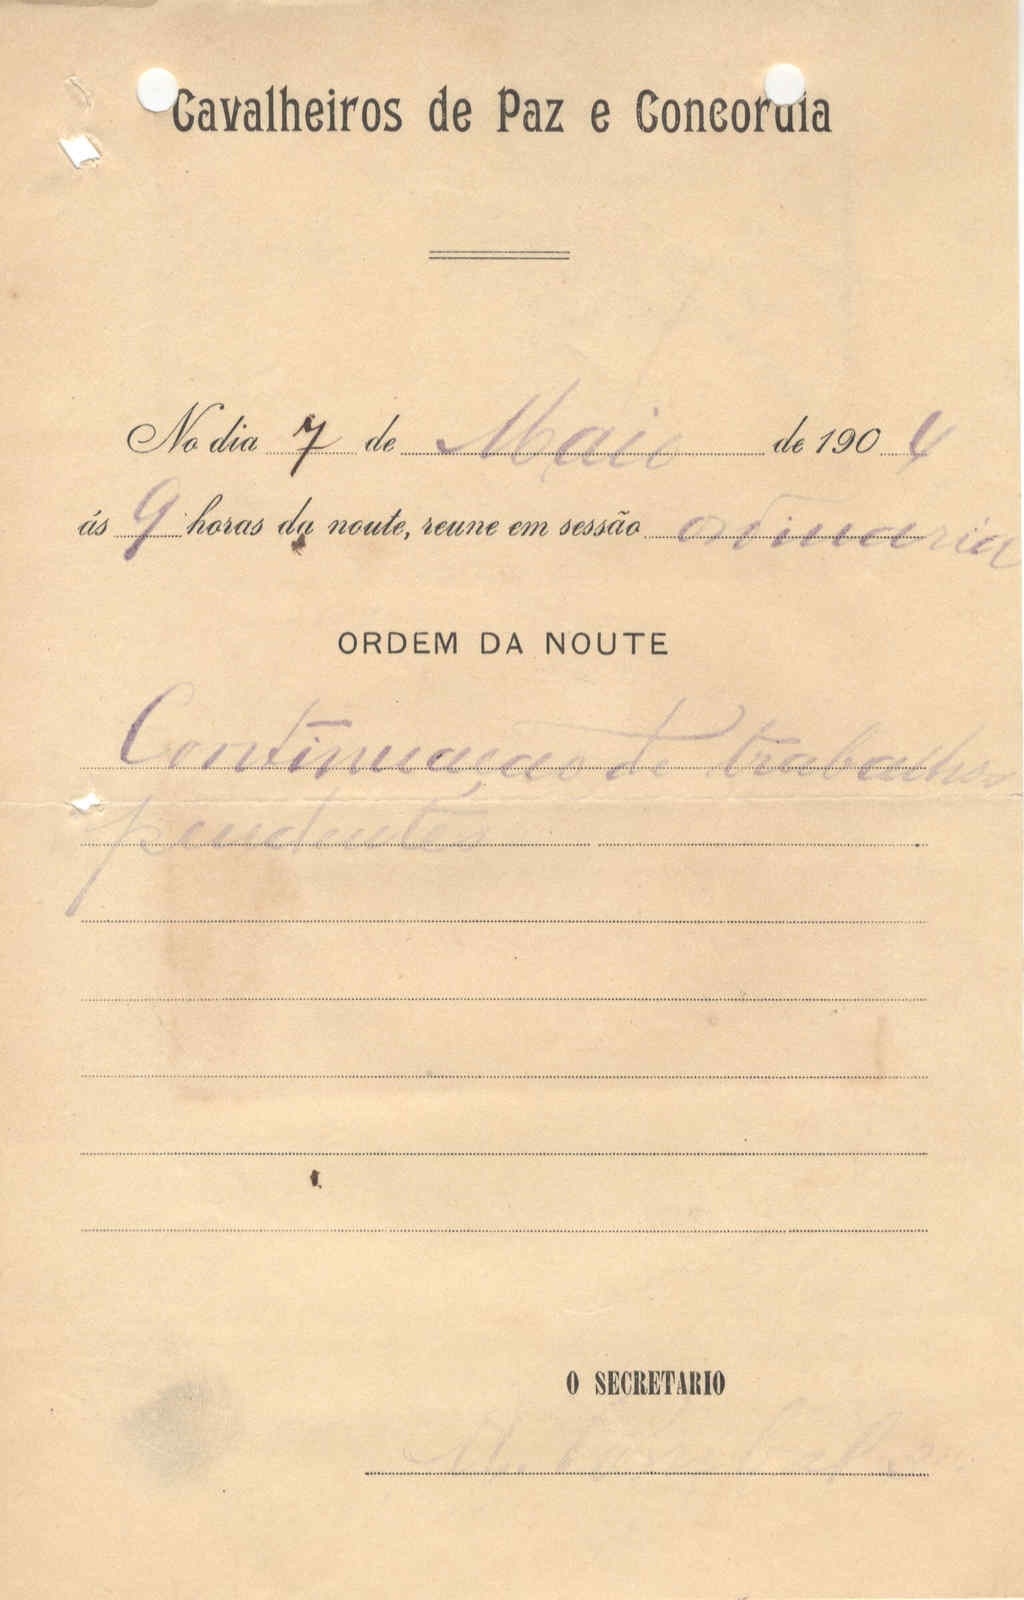 Cavalheiros de Paz e Concordia
No dia 7 de Maio de 1904
ás 9 horas da noute, reune em sessão ordinaria
ORDEM DA NOUTE
Continuação de trabalhos
pendentes
O SECRETARIO